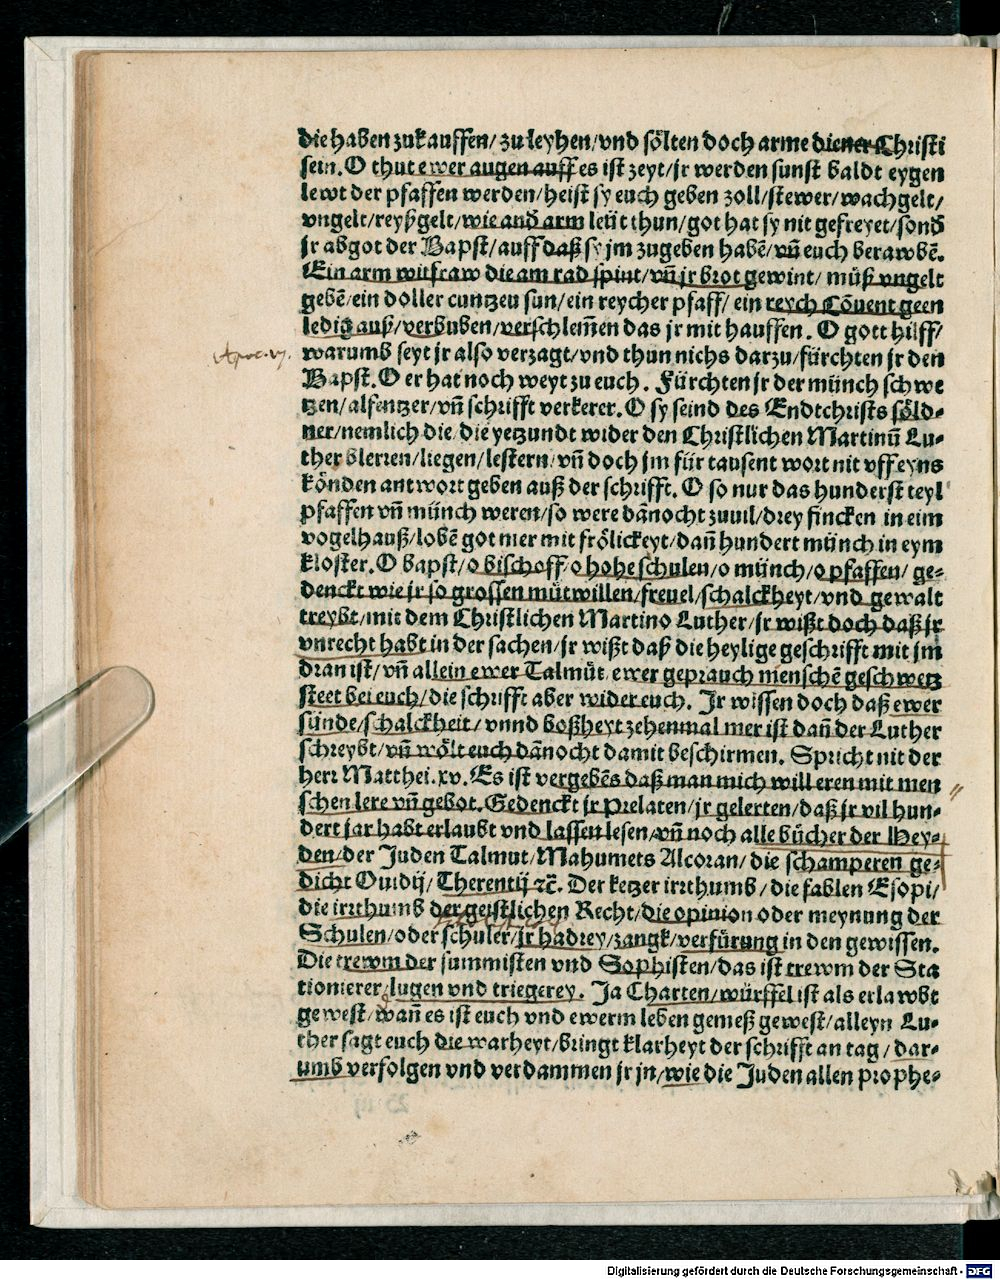 die haben zukauffen/ zu leyhen/ vnd sölten doch arme diener Christi
sein. O thut ewer augen auff es ist zeyt/ jr werden sunst baldt eygen
lewt der pfaffen werden/ heist sy euch geben zoll/ stewer/ wachgelt/
vngelt/ reyßgelt/ wie and̄ arm leüt thun/ got hat sy nit gefreyet/ sond̄
jr abgot der Bapst/ auff daß sy jm zugeben habē/ vñ euch berawbē.
Ein arm witfraw die am rad spint/ vñ jr brot gewint/ müß vngelt
gebē/ ein doller cuntzen sun/ ein reycher pfaff/ ein reych Cōuent geen
ledig auß/ verbuben/ verschlem̄en das jr mit hauffen. O gott hilff/
Apoc. vj.
warumb seyt jr also verzagt/ vnd thun nichs darzu/ fürchten jr den
Bapst. O er hat noch weyt zu euch. Fürchten jr der münch schwe
tzen/ alfentzer/ vñ schrifft verkerer. O sy seind des Endtchrists söld-
ner/ nemlich die/ die yetzundt wider den Christlichen Martinū Lu-
ther blerren/ liegen/ lestern/ vñ doch jm für tausent wort nit vff eyns
könden antwort geben auß der schrifft. O so nur das hunderst teyl
pfaffen vñ münch weren/ so were dānocht zuuil/ drey fincken in eim
vogelhauß/ lobē got mer mit frölickeyt/ dañ hundert münch in eym
kloster. O bapst/ o bischoff/ o hohe schulen/ o münch/ o pfaffen/ ge-
denckt wie jr so grossen mütwillen/ freuel/ schalckheyt/ vnd gewalt
treybt/ mit dem Christlichen Martino Luther/ jr wißt doch daß jr
vnrecht habt in der sachen/ jr wißt daß die heylige geschrifft mit jm
dran ist/ vñ allein ewer Talmüt/ ewer geprauch menschē geschwetz
steet bei euch/ die schrifft aber wider euch. Jr wissen doch daß ewer
sünde/ schalckheit/ vnnd boßheyt zehenmal mer ist dañ der Luther
schreybt/ vñ wölt euch dānocht damit beschirmen. Spricht nit der
herr Matthei. xv. Es ist vergebēs daß man mich will eren mit men
schen lere vñ gebot. Gedenckt jr Prelaten/ jr gelerten/ daß jr vil hun-
dert jar habt erlaubt vnd lassen lesen/ vñ noch alle bücher der Hey-
den/ der Juden Talmut/ Mahumets Alcoran/ die schamperen ge-
dicht Ouidij/ Therentij ⁊c̄. Der ketzer irrthumb/ die fablen Esopi/
die irrthumb der geistlichen Recht/ die opinion oder meynung der
Schulen/ oder schuler/ jr hadrey/ zangk/ verfürung in den gewissen.
Die trewm der summisten vnd Sophisten/ das ist trewm der Sta
tionierer/ lugen vnd triegerey. Ja Charten/ würffel ist als erlawbt
gewest/ wañ es ist euch vnd ewerm leben gemeß gewest/ alleyn Lu-
ther sagt euch die warheyt/ bringt klarheyt der schrifft an tag/ dar-
umb verfolgen vnd verdammen jr jn/ wie die Juden allen prophe-
Digitalisierung gefördert durch die Deutsche Forschungsgemeinschaft - DFG